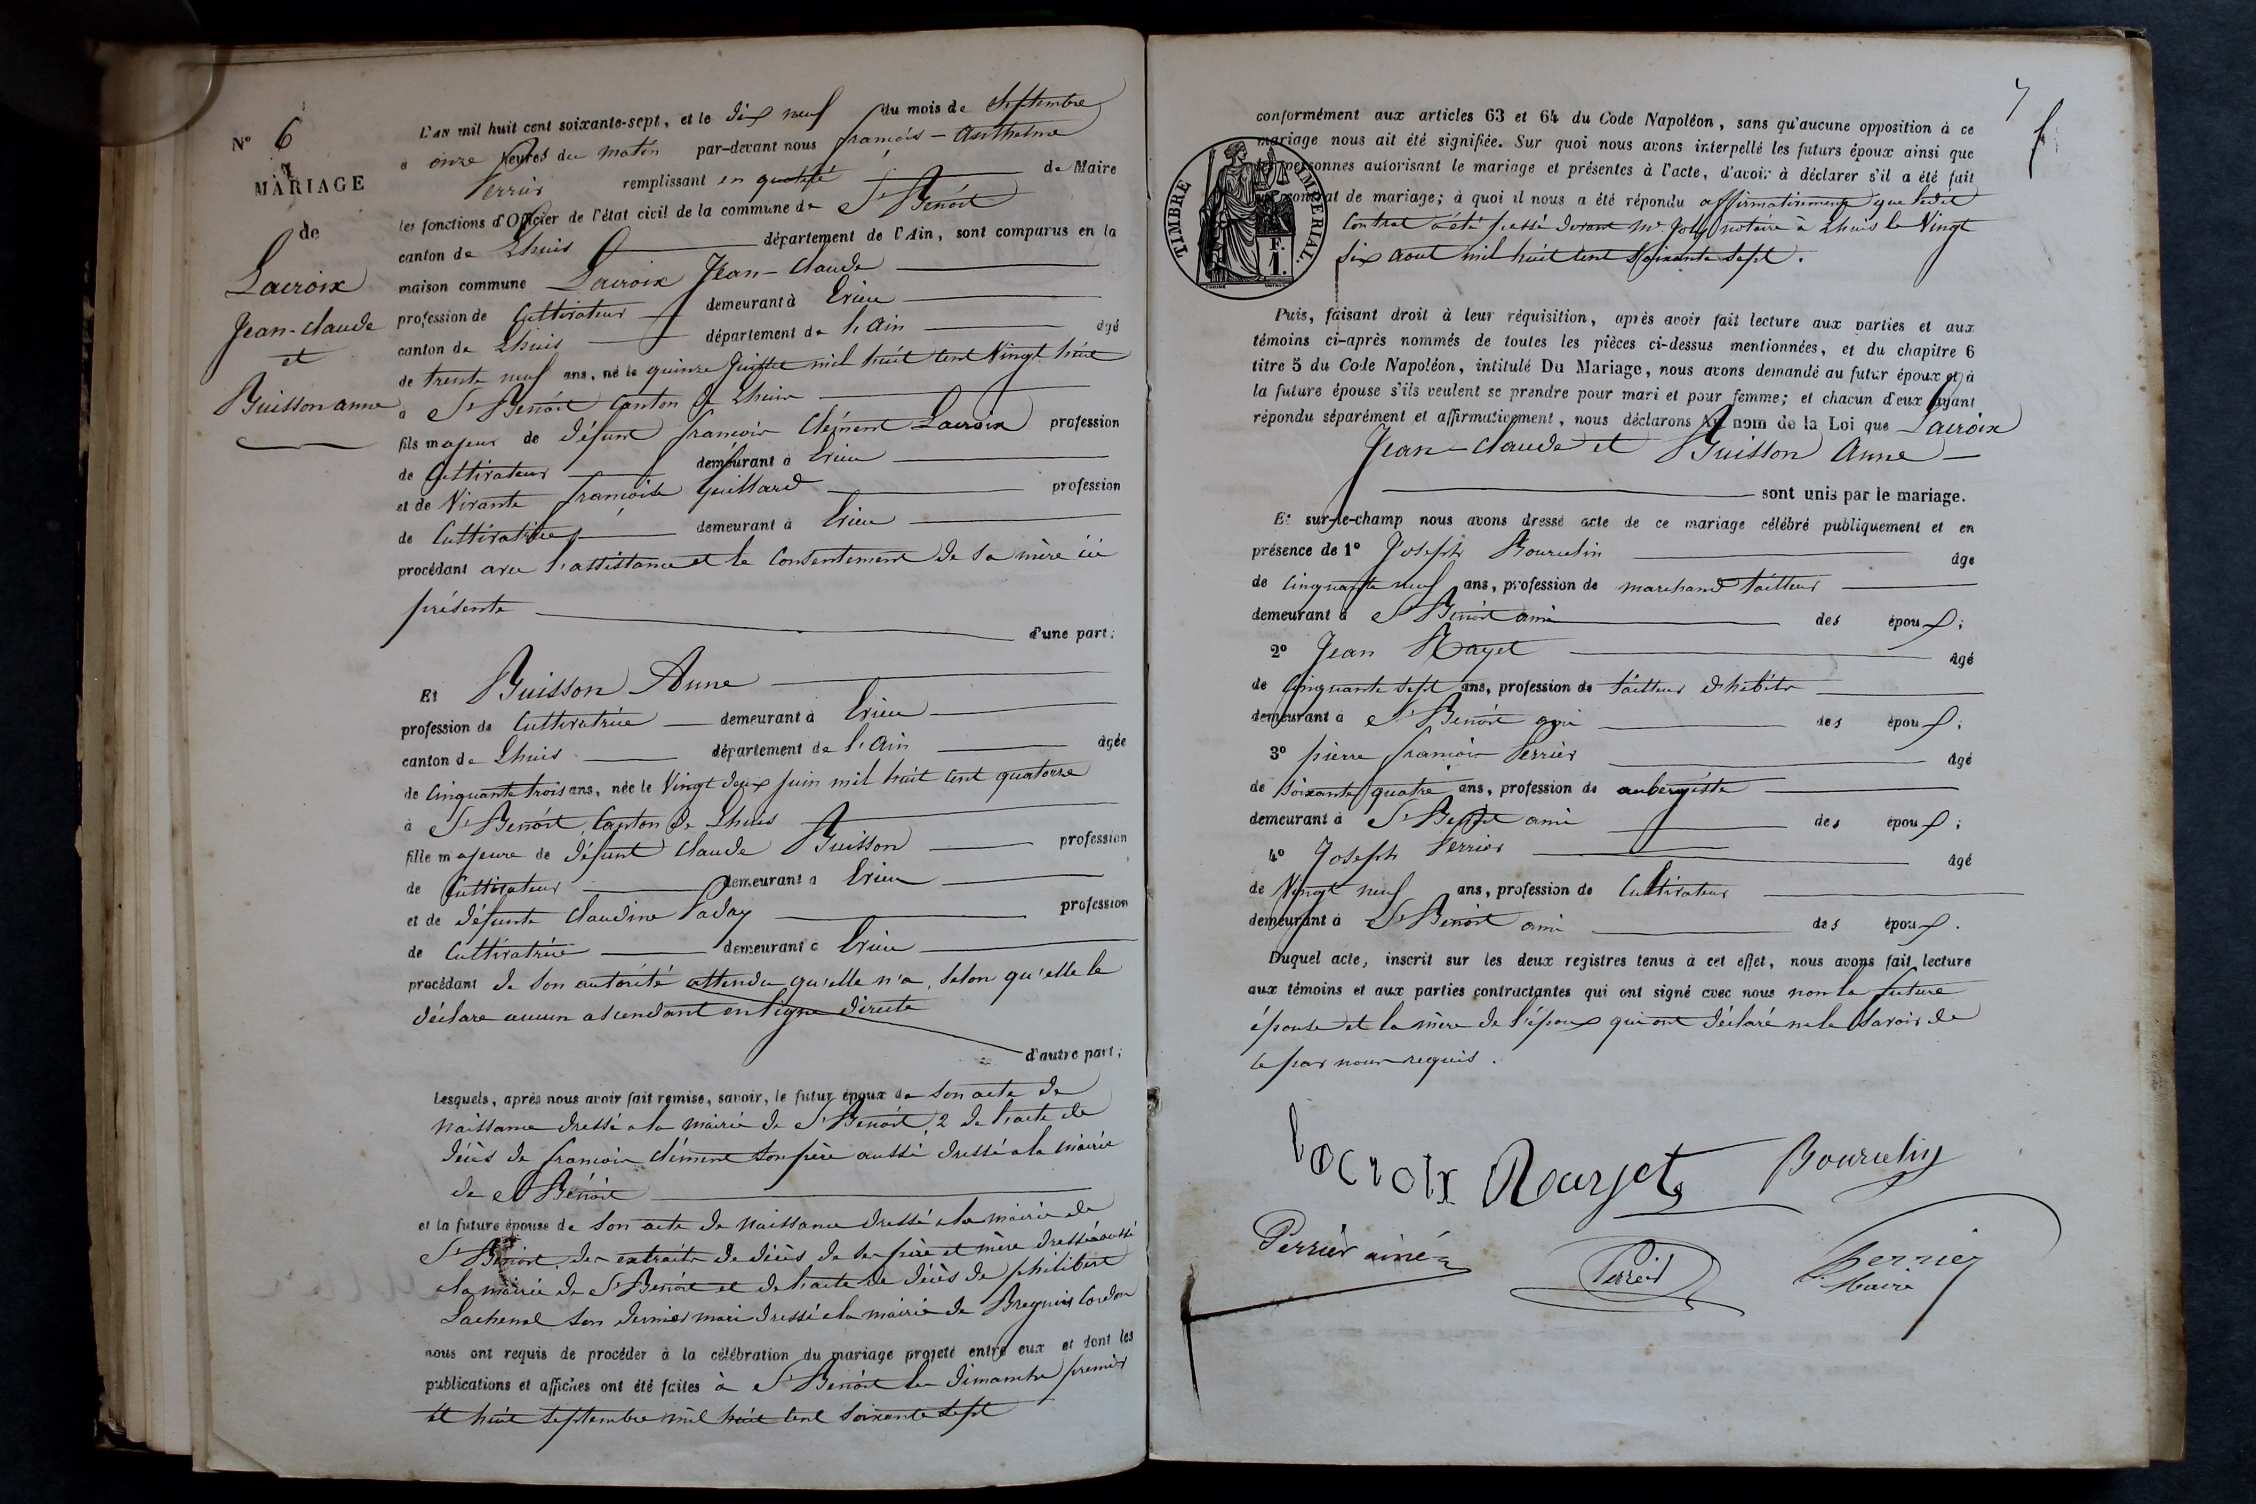 N° 6
MARIAGE
de
Lacroix
Jean-Claude
et
Buisson anne
L'AN mil huit cent soixante-sept, et le dix neuf du mois de Septembre
a onze heures du matin par-devant nous françois-Anthelme
Perrier remplissant en qualité de Maire
les fonctions d'Officier de l'état civil de la commune de St Benoit
canton de Lhuis département de l'Ain, sont comparus en la
maison commune Lacroix Jean-Claude
profession de Cultivateur demeurant à Crieu
canton de Lhuis département de l'ain âgé
de trente neuf ans, né le quinze Juillet mil huit cent Vingt huit
a St Benoit Canton de Lhuis
fils majeur de défunt françois Clément Lacroix profession
de Cultivateur demeurant à Crieu
et de Vivante françoise Guillard profession
de Cultivatrice demeurant à Crieu
procédant avec l'assistance et le Consentement de sa mère ici
présente
d'une part;
Et Buisson Anne
profession de Cultivatrice demeurant à Crieu
canton de Lhuis département de l'Ain âgée
de Cinquante trois ans, née le Vingt deux juin mil huit cent quatorze
à St Benoit, Canton de Lhuis
fille majeure de défunt Claude Buisson profession
de Cultivateur demeurant a Crieu
et de défunte Claudine profession
de Cultivatrice demeurant à Crieu
procédant de son autorité attendu qu'elle n'a, selon qu'elle le
déclare aucun ascendant en ligne directe
d'autre part;
Lesquels, après nous avoir fait remise, savoir, le futur époux de son acte de
Naissance dressé a la mairie de St Benoit, 2 de l'acte de
décès de françois Clément son père aussi dressé a la mairie
de St Benoit
et la future épouse de son acte de Naissance dressé a la mairie de
St Benoit, des extraits de décès de ses père et mère dressé aussi
a la mairie de St Benoit et de l'acte de décès de philibert
Lachenal son dernier mari dressé a la mairie de Bregnier Cordon
nous ont requis de procéder à la célébration du mariage projeté entre eux et dont les
publications et affiches ont été faites à St Benoit les dimanche premier
et huit septembre mil huit cent soixante sept
7
conformément aux articles 63 et 64 du Code Napoléon, sans qu'aucune opposition à ce
mariage nous ait été signifiée. Sur quoi nous avons interpellé les futurs époux ainsi que
les personnes autorisant le mariage et présentes à l'acte, d'avoir à déclarer s'il a été fait
un contrat de mariage; à quoi il nous a été répondu affirmativement que ledit
Contrat a été passé devant Mr Joly notaire à Lhuis le Vingt
six aout mil huit cent Soixante Sept.
TIMBRE IMPERIAL.
F.
1.
Puis, faisant droit à leur réquisition, après avoir fait lecture aux parties et aux
témoins ci-après nommés de toutes les pièces ci-dessus mentionnées, et du chapitre 6
titre 5 du Code Napoléon, intitulé Du Mariage, nous avons demandé au futur époux et à
la future épouse s'ils veulent se prendre pour mari et pour femme; et chacun d'eux ayant
répondu séparément et affirmativement, nous déclarons au nom de la Loi que Lacroix
Jean-Claude et Buisson Anne
sont unis par le mariage.
Et sur-le-champ nous avons dressé acte de ce mariage célébré publiquement et en
présence de 1° Joseph Bourcelin âge
de Cinquante neuf ans, profession de marchand tailleur
demeurant à St Benoit ami des époux;
2° Jean Rayet âgé
de Cinquante sept ans, profession de tailleur d'habits
demeurant à St Benoit ami des époux;
3° pierre françois Perrier âgé
de Soixante quatre ans, profession de aubergiste
demeurant à St Benoit ami des époux;
4° Joseph Perrier âgé
de Vingt neuf ans, profession de Cultivateur
demeurant à St Benoit ami des époux.
Duquel acte, inscrit sur les deux registres tenus à cet effet, nous avons fait lecture
aux témoins et aux parties contractantes qui ont signé avec nous non la future
épouse et la mère de l'époux qui ont déclaré ne le Savoir de
ce par nous requis.
Lacroix Rarjet Bourcelin
Perrier ainé Perrier Perrier
Maire